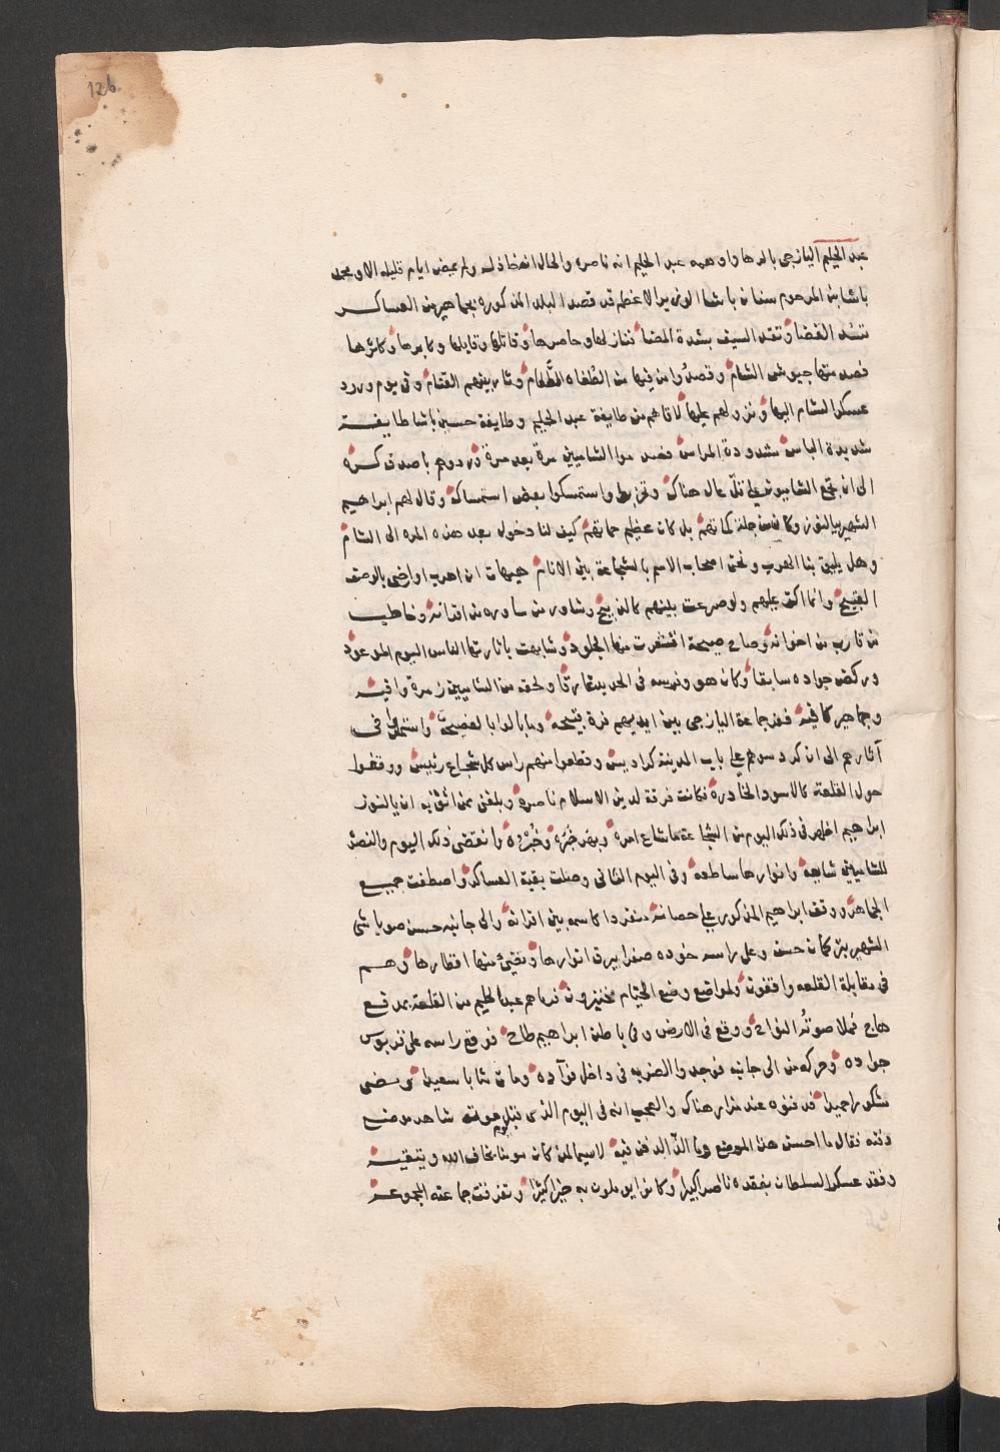 126
عبد الحليم اليازجي بالرها واوهمه عبد الحليم انه ناصره والحال انه خاذله ولم يمض ايام قليله الا ومحمد
باشا بن المرحوم سنان باشا الوزير الاعظم قد قصد البلد المذكوره بجماهير من العساكر
تسد الفضا وتقد السيف بشدة المضا فنازلها وحاصرها وقاتلها وقابلها وكابرها وكاثرها
فصدمتها جيوش الشام وقصدوا من فيها من الطغاه الطغام وثار بينهم القتام وفي يوم ورود
عسكر الشام اليها ونزولهم عليها لاقاهم من طايفة عبد الحليم وطايفة حسين باشا طايفة
شديدة الباس مشدودة المراس فصدموا الشاميين مرة بعد مرة وردوهم باصدق كره
الى ان تجمع الشاميون على تل عال هناك وتحزبوا واستمسكوا بعض استمساك وقال لهم ابراهيم
الشهير بيالنوز وكان من جملة كماتهم بل كان عظيم حماتهم كيف لنا دخول بعد هذه المره الى الشام
وهل يليق بنا الهرب ونحن اصحاب الاسم بالشجاعة بين الانام هيهات ان اهرب او ارضى بالوصف
القبيح وانما اكر عليهم ولو صرعت بينهم كالذبيح وشاور من ساوره من اقرانه وخاطب
من قارب من اخوانه وصاح صيحة اقشعرت منها الجلود وشابهت باثارتها الناس اليوم الموعود
وركض جواده سابقا وكان هو وفرسه في الحديد غارقا ولحقه من الشاميين زمرة وافيه
وجماهير كافيه ففر جماعة اليازجي بين ايديهم فرة قبيحه وما بالوا بالفضيحة واستمروا في
آثارهم الى ان كردسوهم على باب المدينة كراديس وقطعوا منهم راس كل شجاع رئيس ووقفوا
حول القلعة كالاسود الخادرة فكانت فرقة لدين الاسلام ناصره وبلغني ممن اثق به ان يالنوز
ابراهيم اظهر في ذلك اليوم من الشجاعة ما شاع امره وانقضى ذلك اليوم والنصر
للشاميين شايعة وانوارها ساطعه وفي اليوم الثاني وصلت بقية العساكر واصطفت جميع
الجماهر ووقف ابراهيم المذكور على حصانه منفردا كاسمه بين اقرانه والى جانبه حسن صوباشي
الشهير بتركمان حسن وعلى راسه خوده صفرا يبرق انوارها وتضئ منها اقطارها وهم
في مقابلة القلعه واقفون ولمواضع وضع الخيام متخيرون فرماهم عبد الحليم من القلعة بمدفع
هاج فملا صوته النواح ووقع في الارض وفي باطن ابراهيم طاح فوقع راسه على قربوس
جواده وحركه من الى جانبه فوجدوا الضربه في داخل فوآده ومات شابا سعيدا ومضى
مشكورا حميدا فدفنوه عند مزار هناك والعجب انه في اليوم الذي قبل موته شاهد موضع
دفنه فقال ما احسن هذا الموضع وما الذ الدفن فيه لاسيما لمن كان مومنا يخاف الله ويتقيه
وفقد عسكر السلطان بفقده ناصرا كبيرا وكانوا يوملون به خيرا كثيرا وتفرقت جماعته المجموعة